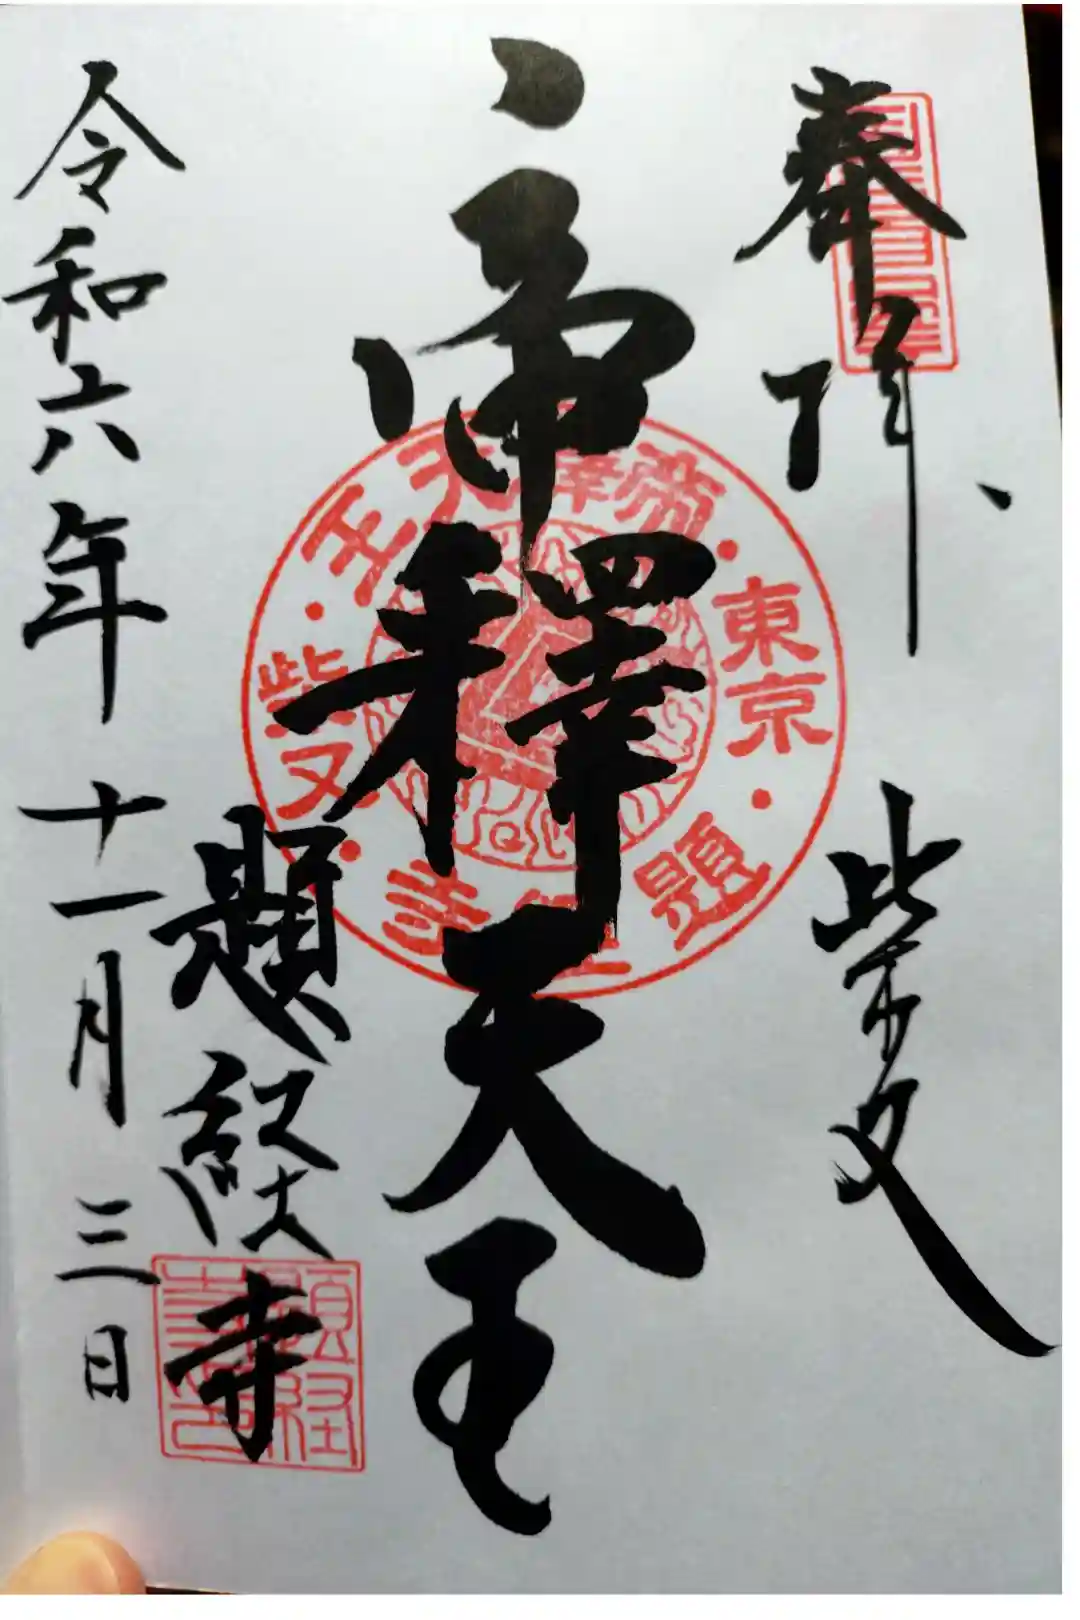 奉拝、
柴又
帝釋天王
題経寺
令和六年十一月三日
帝釋天王
東京
柴又
題経寺
題経寺